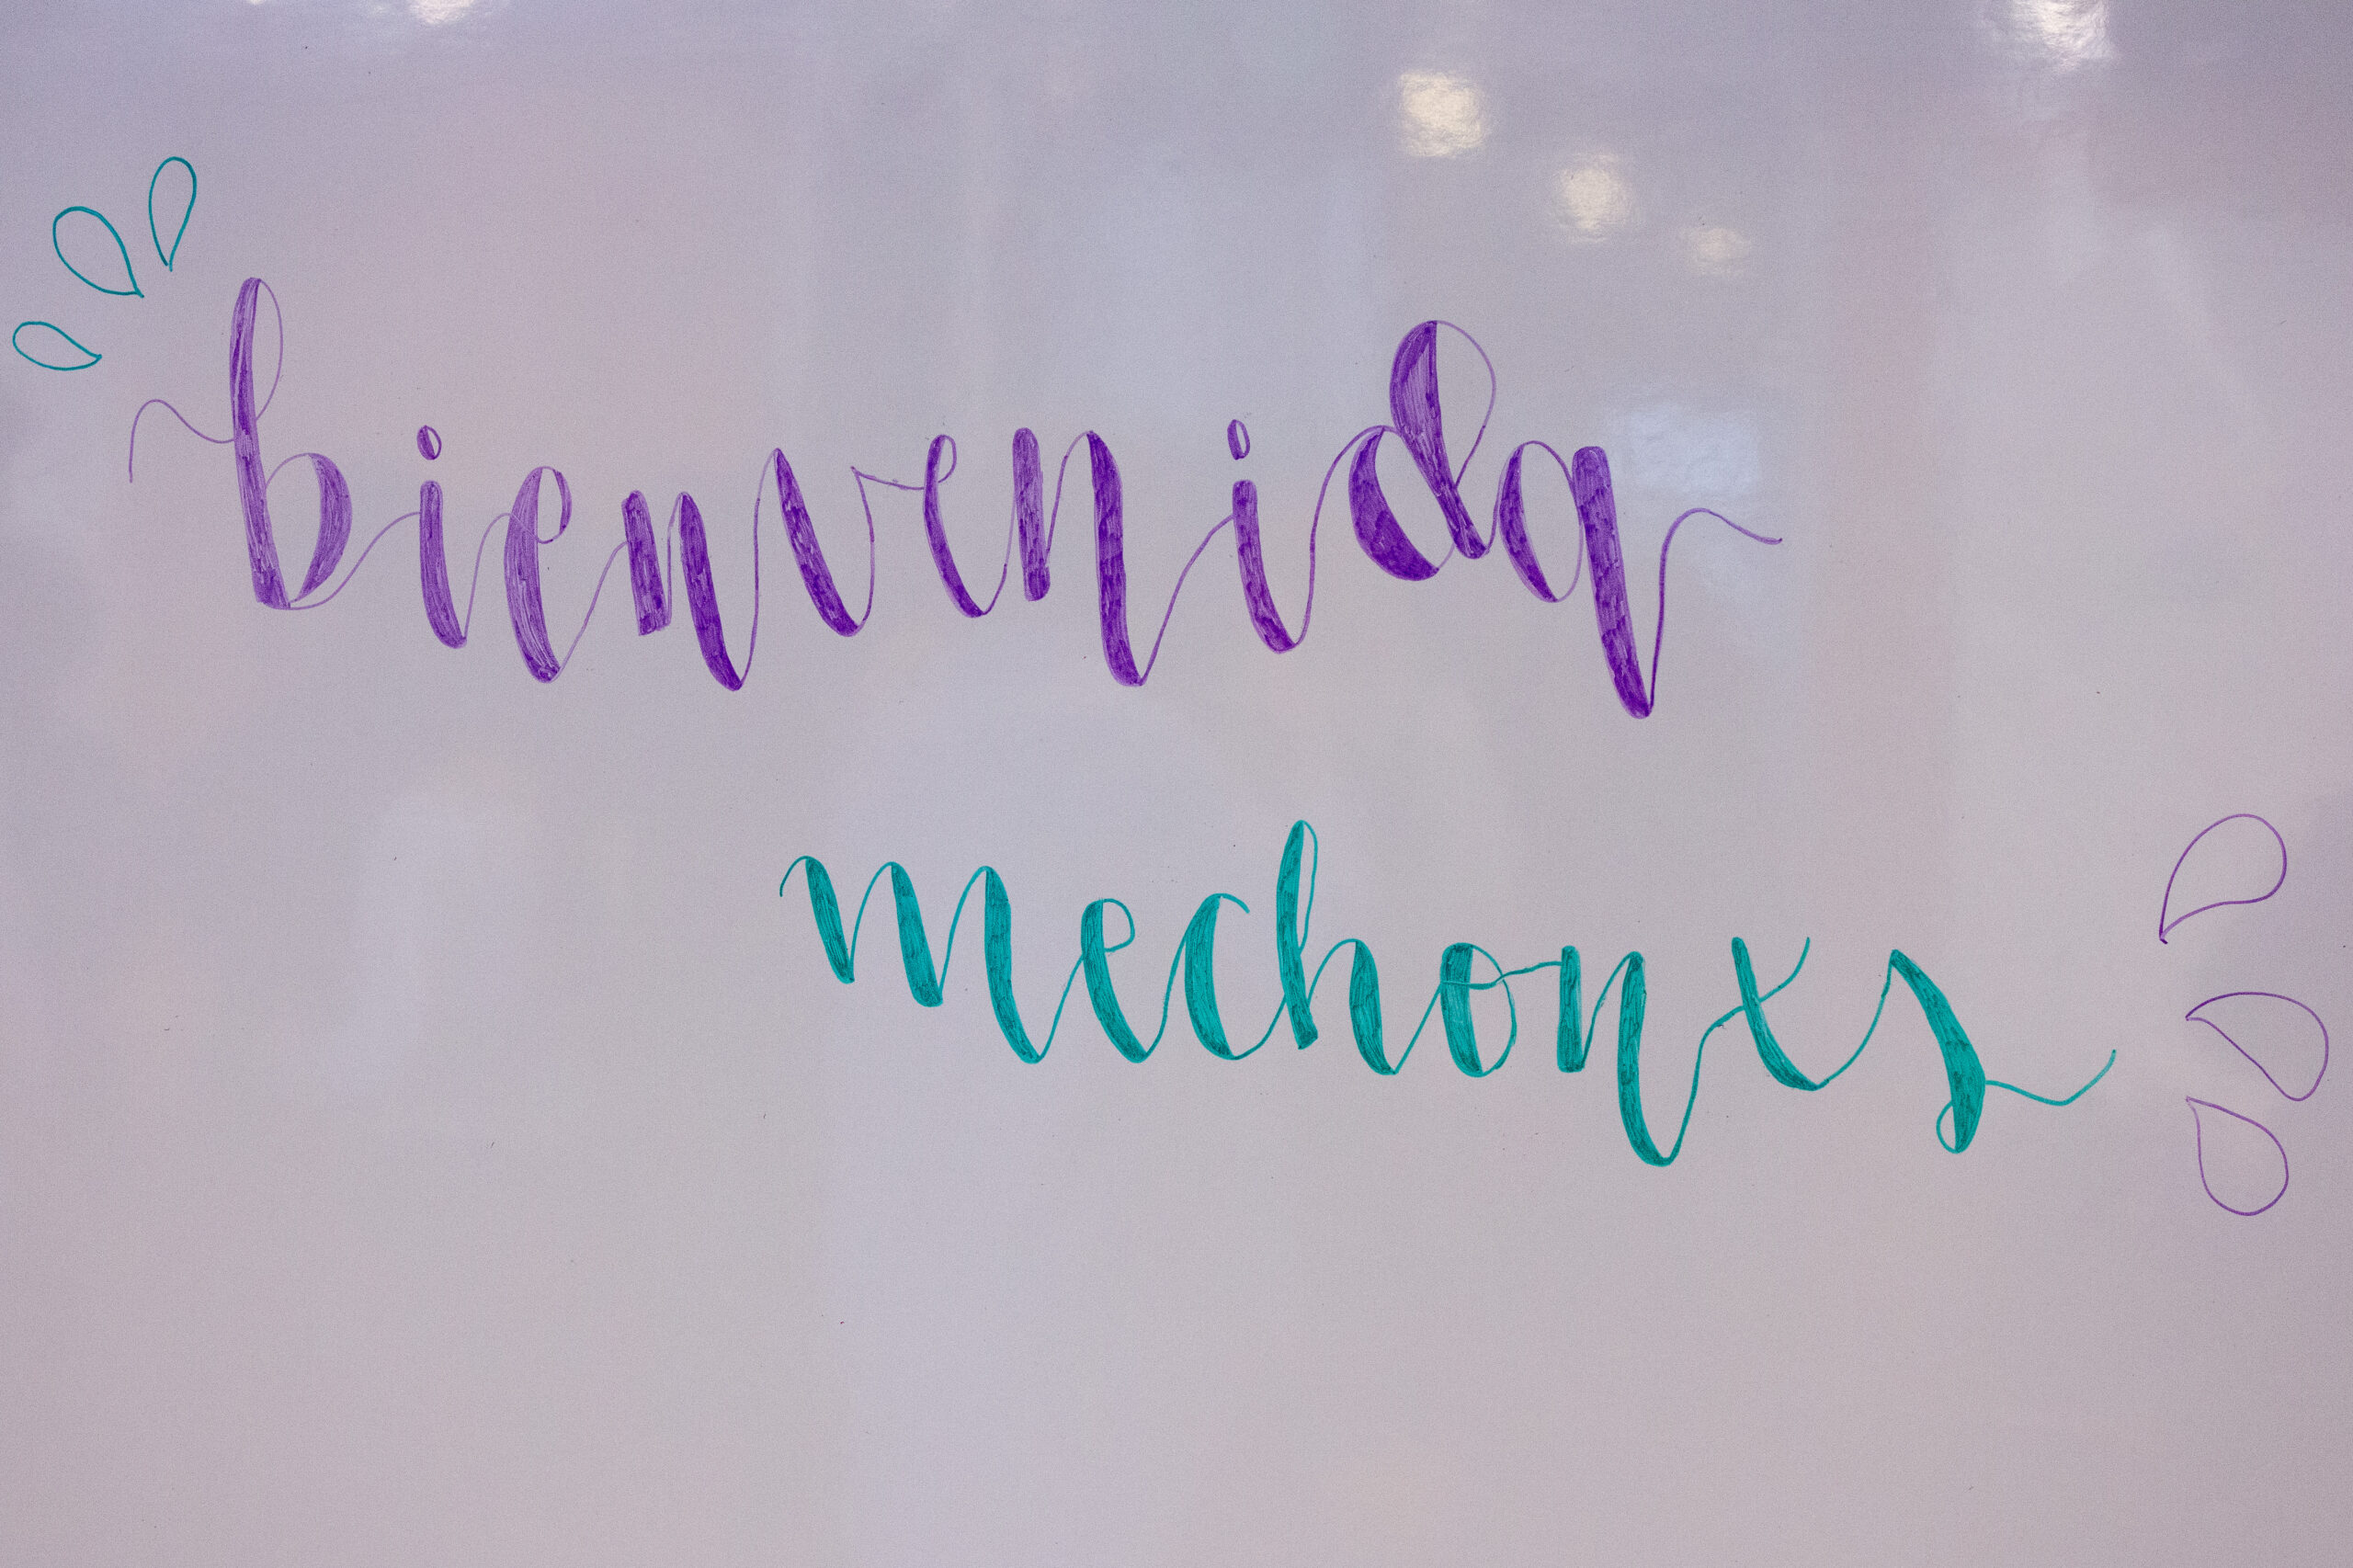 bienvenida
mechonxs